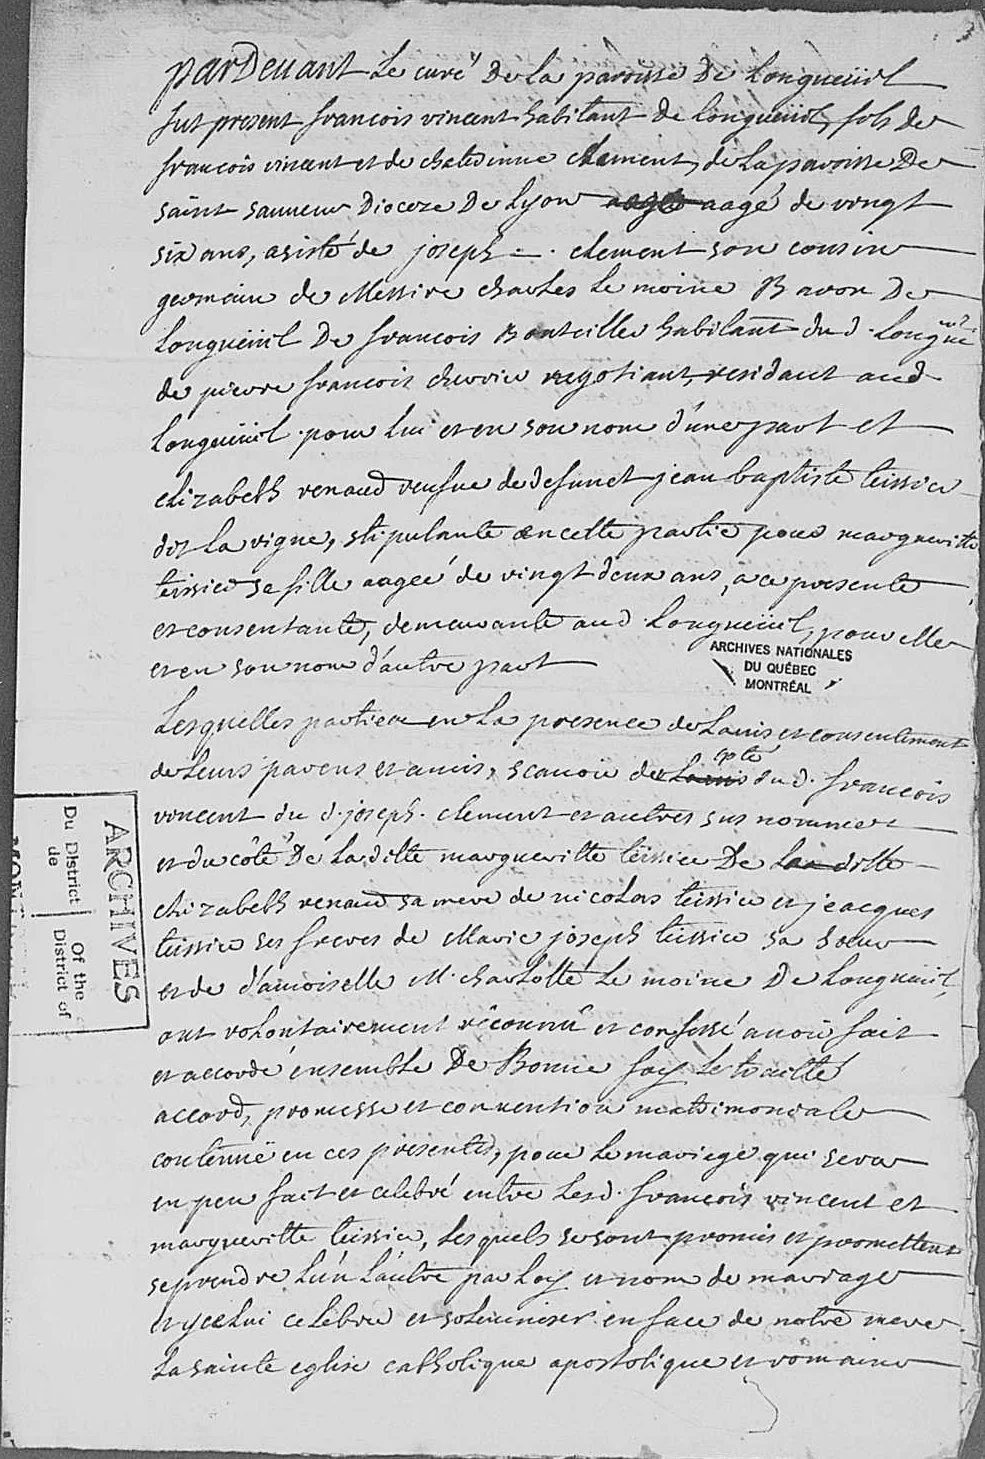 parDeuant Le curé De La paroisse De Longueüil
fut present francois vincent habitant de Longueüil, fils de
francois vincent et de chatedinne clement, de La paroisse De
saint sauueur Dioceze De Lyon aagé de vingt
six ans, asisté de joseph clement son cousin
germain de Messire charles Le moine Baron De
Longueüil De francois Bouteille habitant dud. Longueüil
de pierre francois chevrie negotiant, residant aud
Longueüil pour Lui et en son nom d'une part et
elizabeth renaud veufue de defunct jean baptiste teissier
dit La vigne, stipulante en cette partie pour margueritte
teissier sa fille aagéé de vingt deux ans, a ce presente
et consentante, demeurante aud. Longueüil, pour elle
et en son nom d'autre part
ARCHIVES NATIONALES
DU QUÉBEC
MONTRÉAL
Lesquelles parties en La presence de Lauis et consentement
de Leurs parens et amis, scauoir de cpte dud. francois
vincent du d. joseph. clement et autres sus nommer
et du côté De Laditte margueritte teissier De La ditte
elizabeth renaud sa mere de nicolas teissier et jeacques
teissier ses freres de Marie joseph teissier sa soeur
et de d'amoiselle M. charlotte Le moine De Longueüil,
ont volontairement reconnu et confessé auoir fait
et accordé ensemble De Bonne foy Le traitté
accord, promesse et conuention matrimoniale
contenüe en ces presentes, pour Le mariege qui sera
en peu fait et celebré entre Lesd. francois vincent et
margueritte teissier, Lesquels se sont promis et promettent
se prendre L'un L'autre par Loy et nom de mariage
et ycelui celebre et solemniser en face de notre mere
La sainte eglise catholique apostolique et romaine
ARCHIVES
Du District
de
Of the
District of